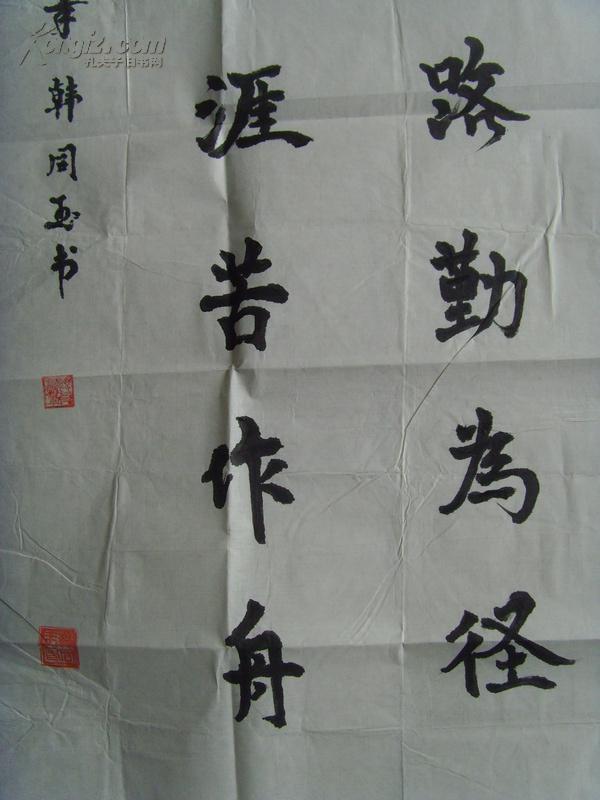 路勤為径
涯苦作舟
韩周玉书
Kongfz.com
孔夫子旧书网